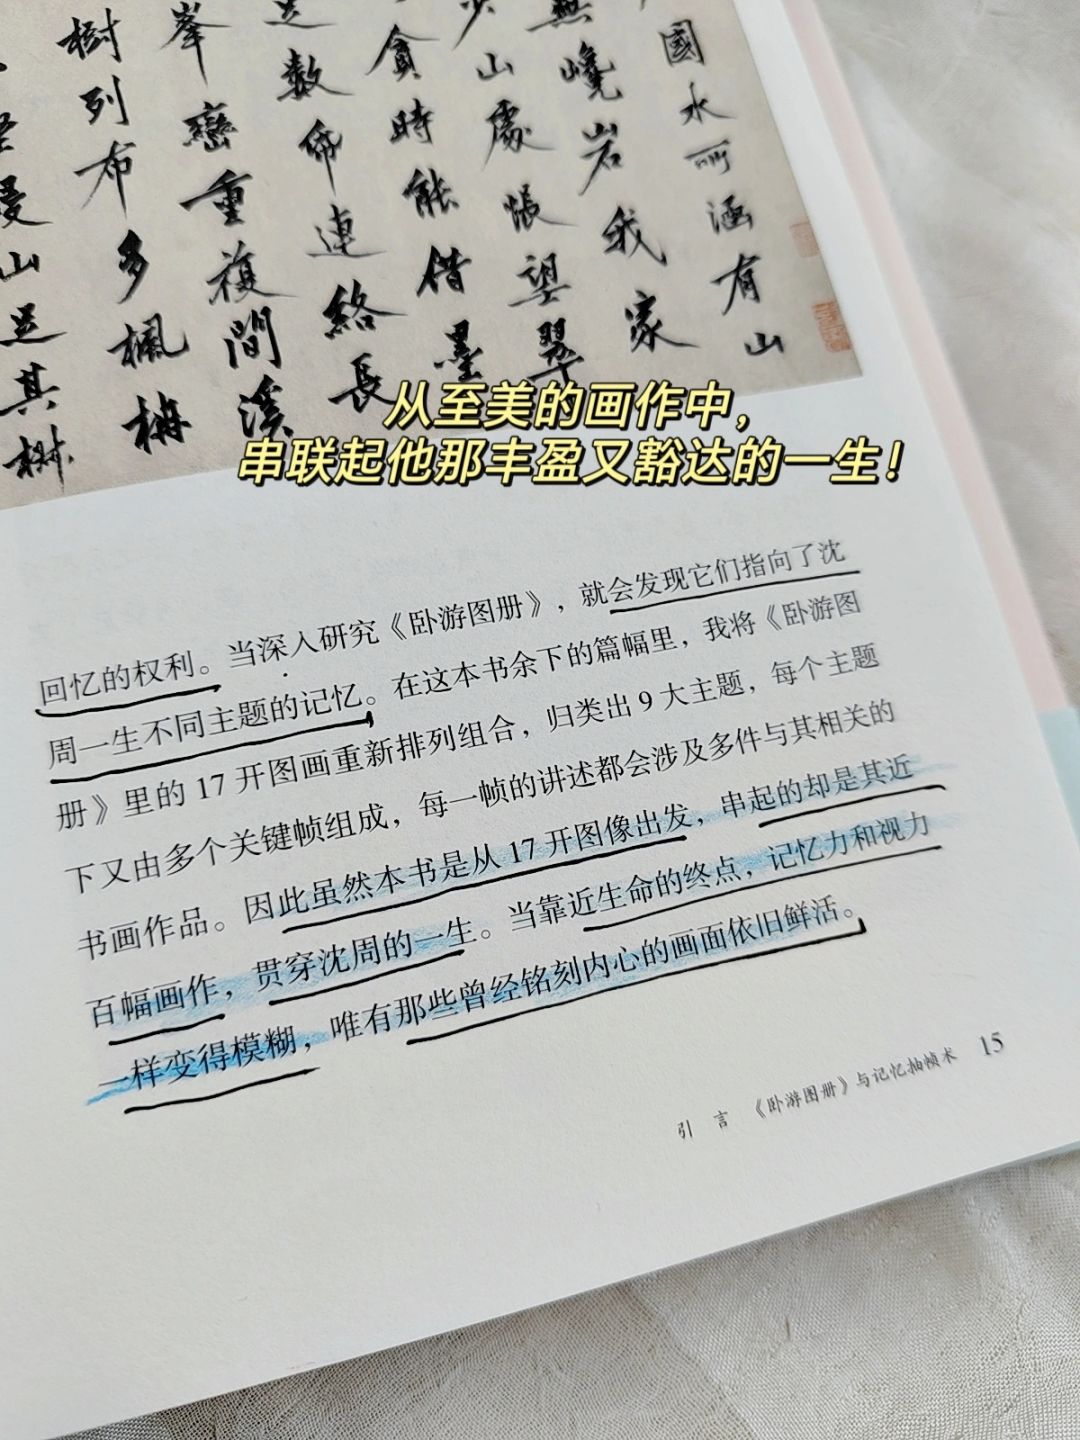 國水所涵有山
無巉岩我家
少山處悵望翠
貪時能借墨
數帋連絡長
峯巒重複間溪
樹列布多楓枏
山足其樹
从至美的画作中，
串联起他那丰盈又豁达的一生！
回忆的权利。当深入研究《卧游图册》，就会发现它们指向了沈
周一生不同主题的记忆。在这本书余下的篇幅里，我将《卧游图
册》里的 17 开图画重新排列组合，归类出 9 大主题，每个主题
下又由多个关键帧组成，每一帧的讲述都会涉及多件与其相关的
书画作品。因此虽然本书是从 17 开图像出发，串起的却是其近
百幅画作，贯穿沈周的一生。当靠近生命的终点，记忆力和视力
一样变得模糊，唯有那些曾经铭刻内心的画面依旧鲜活。
引 言 《卧游图册》与记忆抽帧术 15